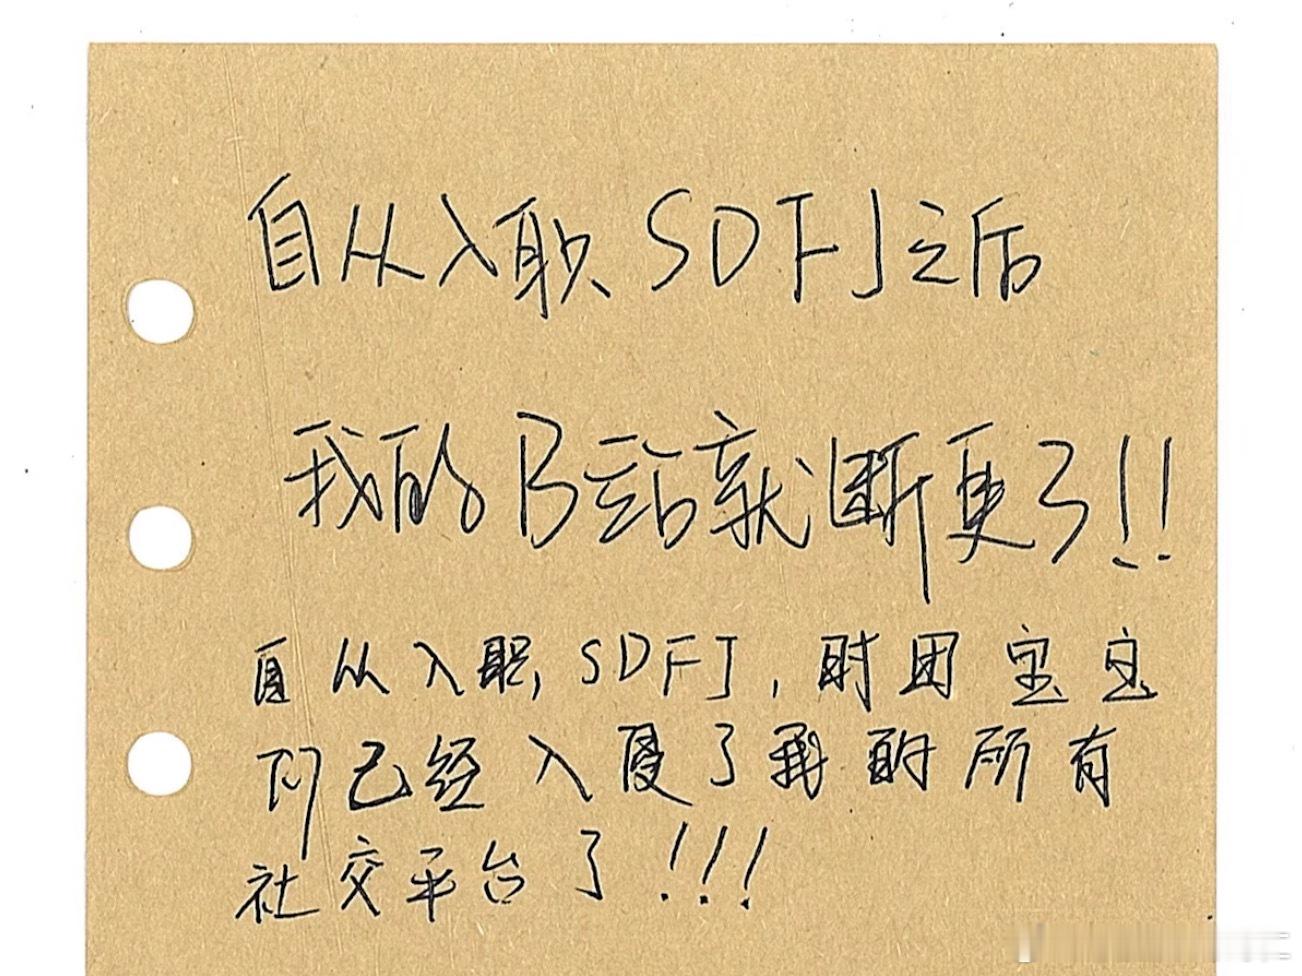 自从入职SDFJ之后
我的B站就断更了!!
自从入职,SDFJ,财团宝宝
们已经入侵了我的所有
社交平台了!!!